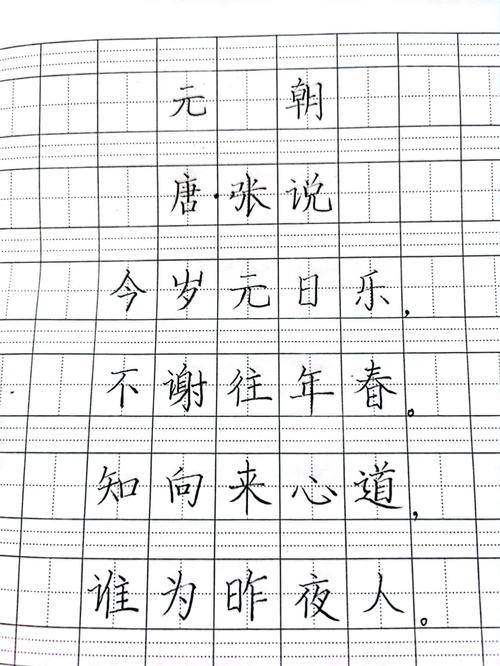 元 朝
唐·张说
今岁元日乐,
不谢往年春。
知向来心道,
谁为昨夜人。